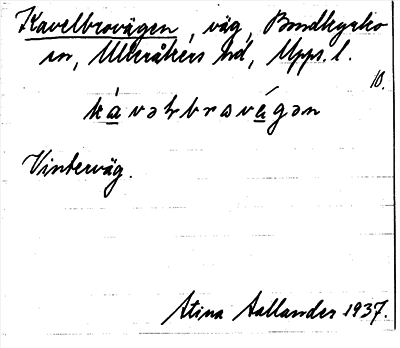 Kavelbrovägen, väg, Bondkyrko
sn, Ulleråkers hd, Upps. l.
10.
kávəlbravágən
Vinterväg.
Stina Hallander 1937.